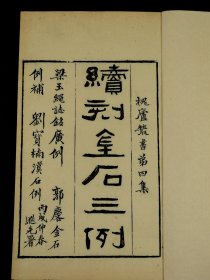 槐廬叢書第四集
續刻金石三例
梁玉繩誌銘廣例　郭麐金石
例補　劉寶楠漢石例
丙戌仲春
署